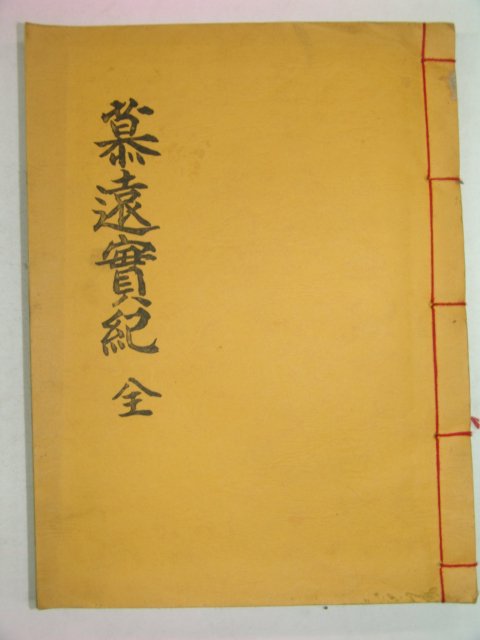 慕遠實紀 全